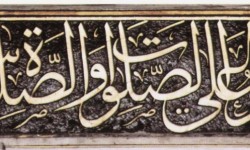 على الصلوات والصلاة